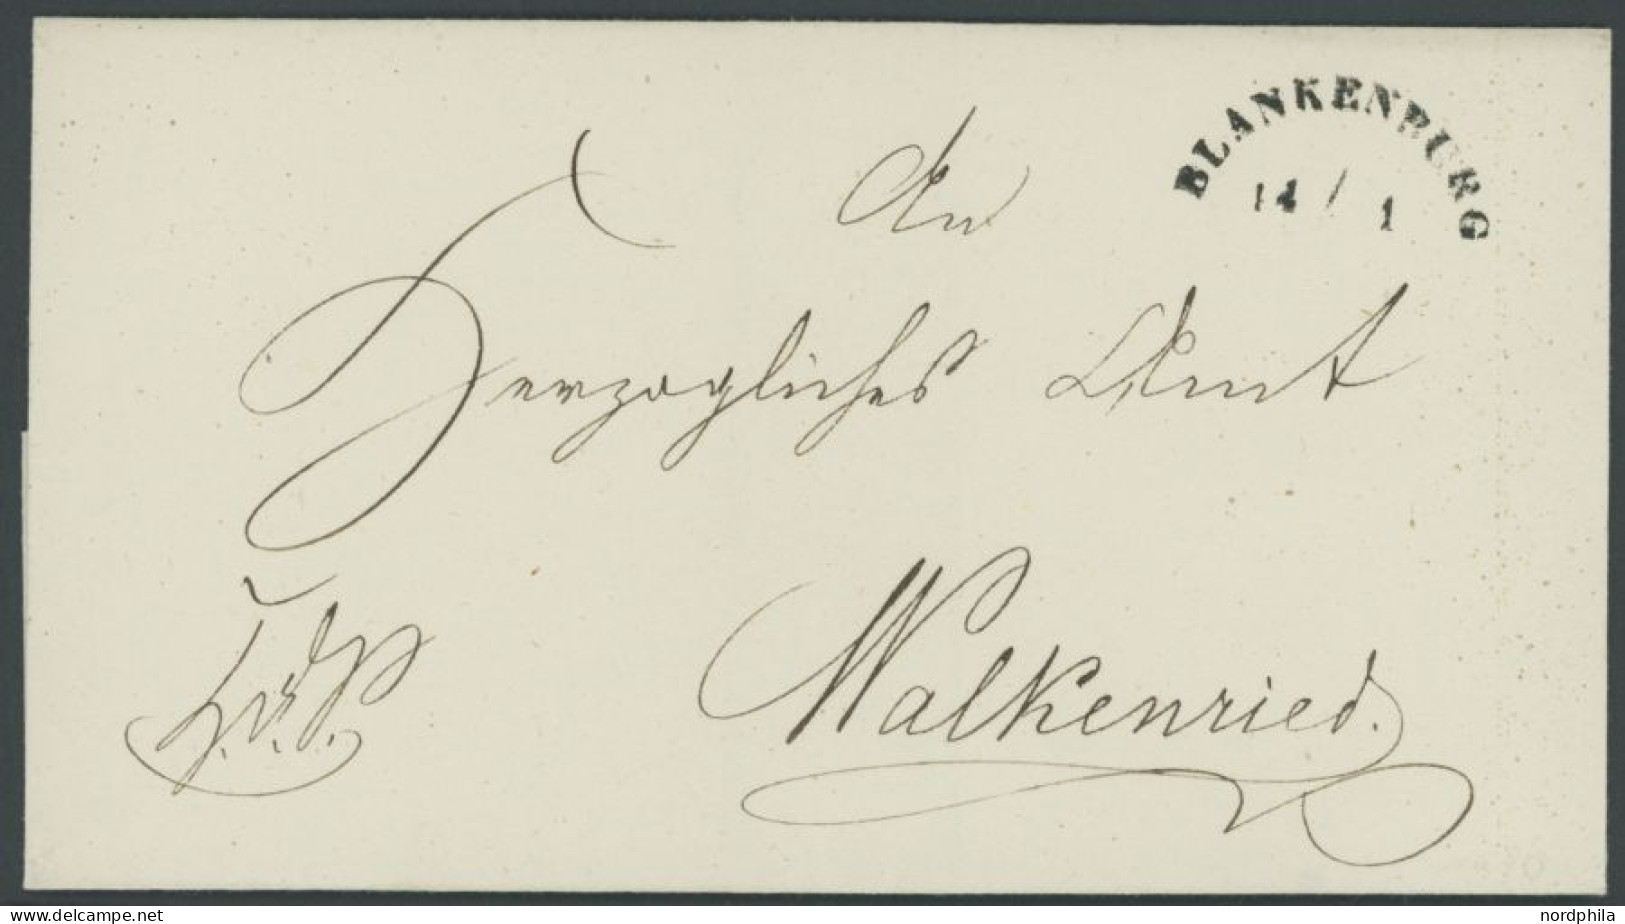 BLANKENBURG
14 / 1
An
Herzogliches Amt
Walkenried.
H. d. S.
www.delcampe.net
nordphila